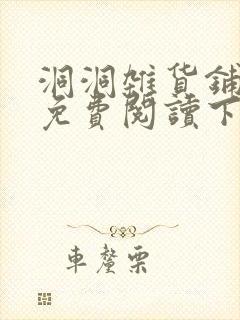 洞洞雜貨鋪
免費閱讀下
車釐栗